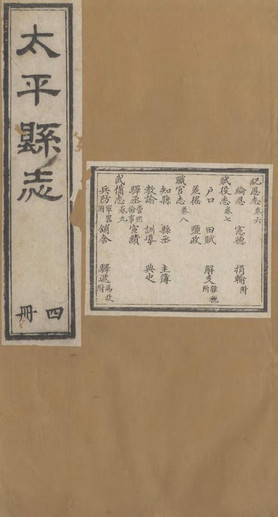 太平縣志
四冊
紀恩志卷六
綸恩 憲德 捐輸附
賦役志卷七
戶口 田賦 解支附 雜稅
蓋梠 鹽政
職官志卷八
知縣 縣丞 主簿
教諭 訓導 典史
驛丞 宦績
武備志卷九
兵防 鋪舍 驛遞附